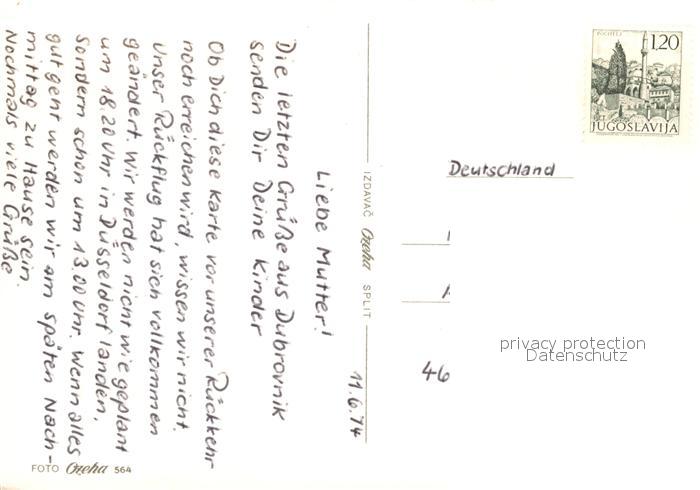 11.6.74
Liebe Mutter!
Die letzten Grüße aus Dubrovnik
senden Dir Deine Kinder
Ob Dich diese Karte vor unserer Rückkehr
noch erreichen wird, wissen wir nicht.
Unser Rückflug hat sich vollkommen
geändert. Wir werden nicht wie geplant
um 18.20 Uhr in Düsseldorf landen,
sondern schon um 13.00 Uhr. Wenn alles
gut geht werden wir am späten Nach-
mittag zu Hause sein.
Nochmals viele Grüße
FOTO Ozeha 564
IZDAVAČ Ozeha SPLIT
POČITELJ
1,20
PTT
JUGOSLAVIJA
Deutschland
46
privacy protection
Datenschutz